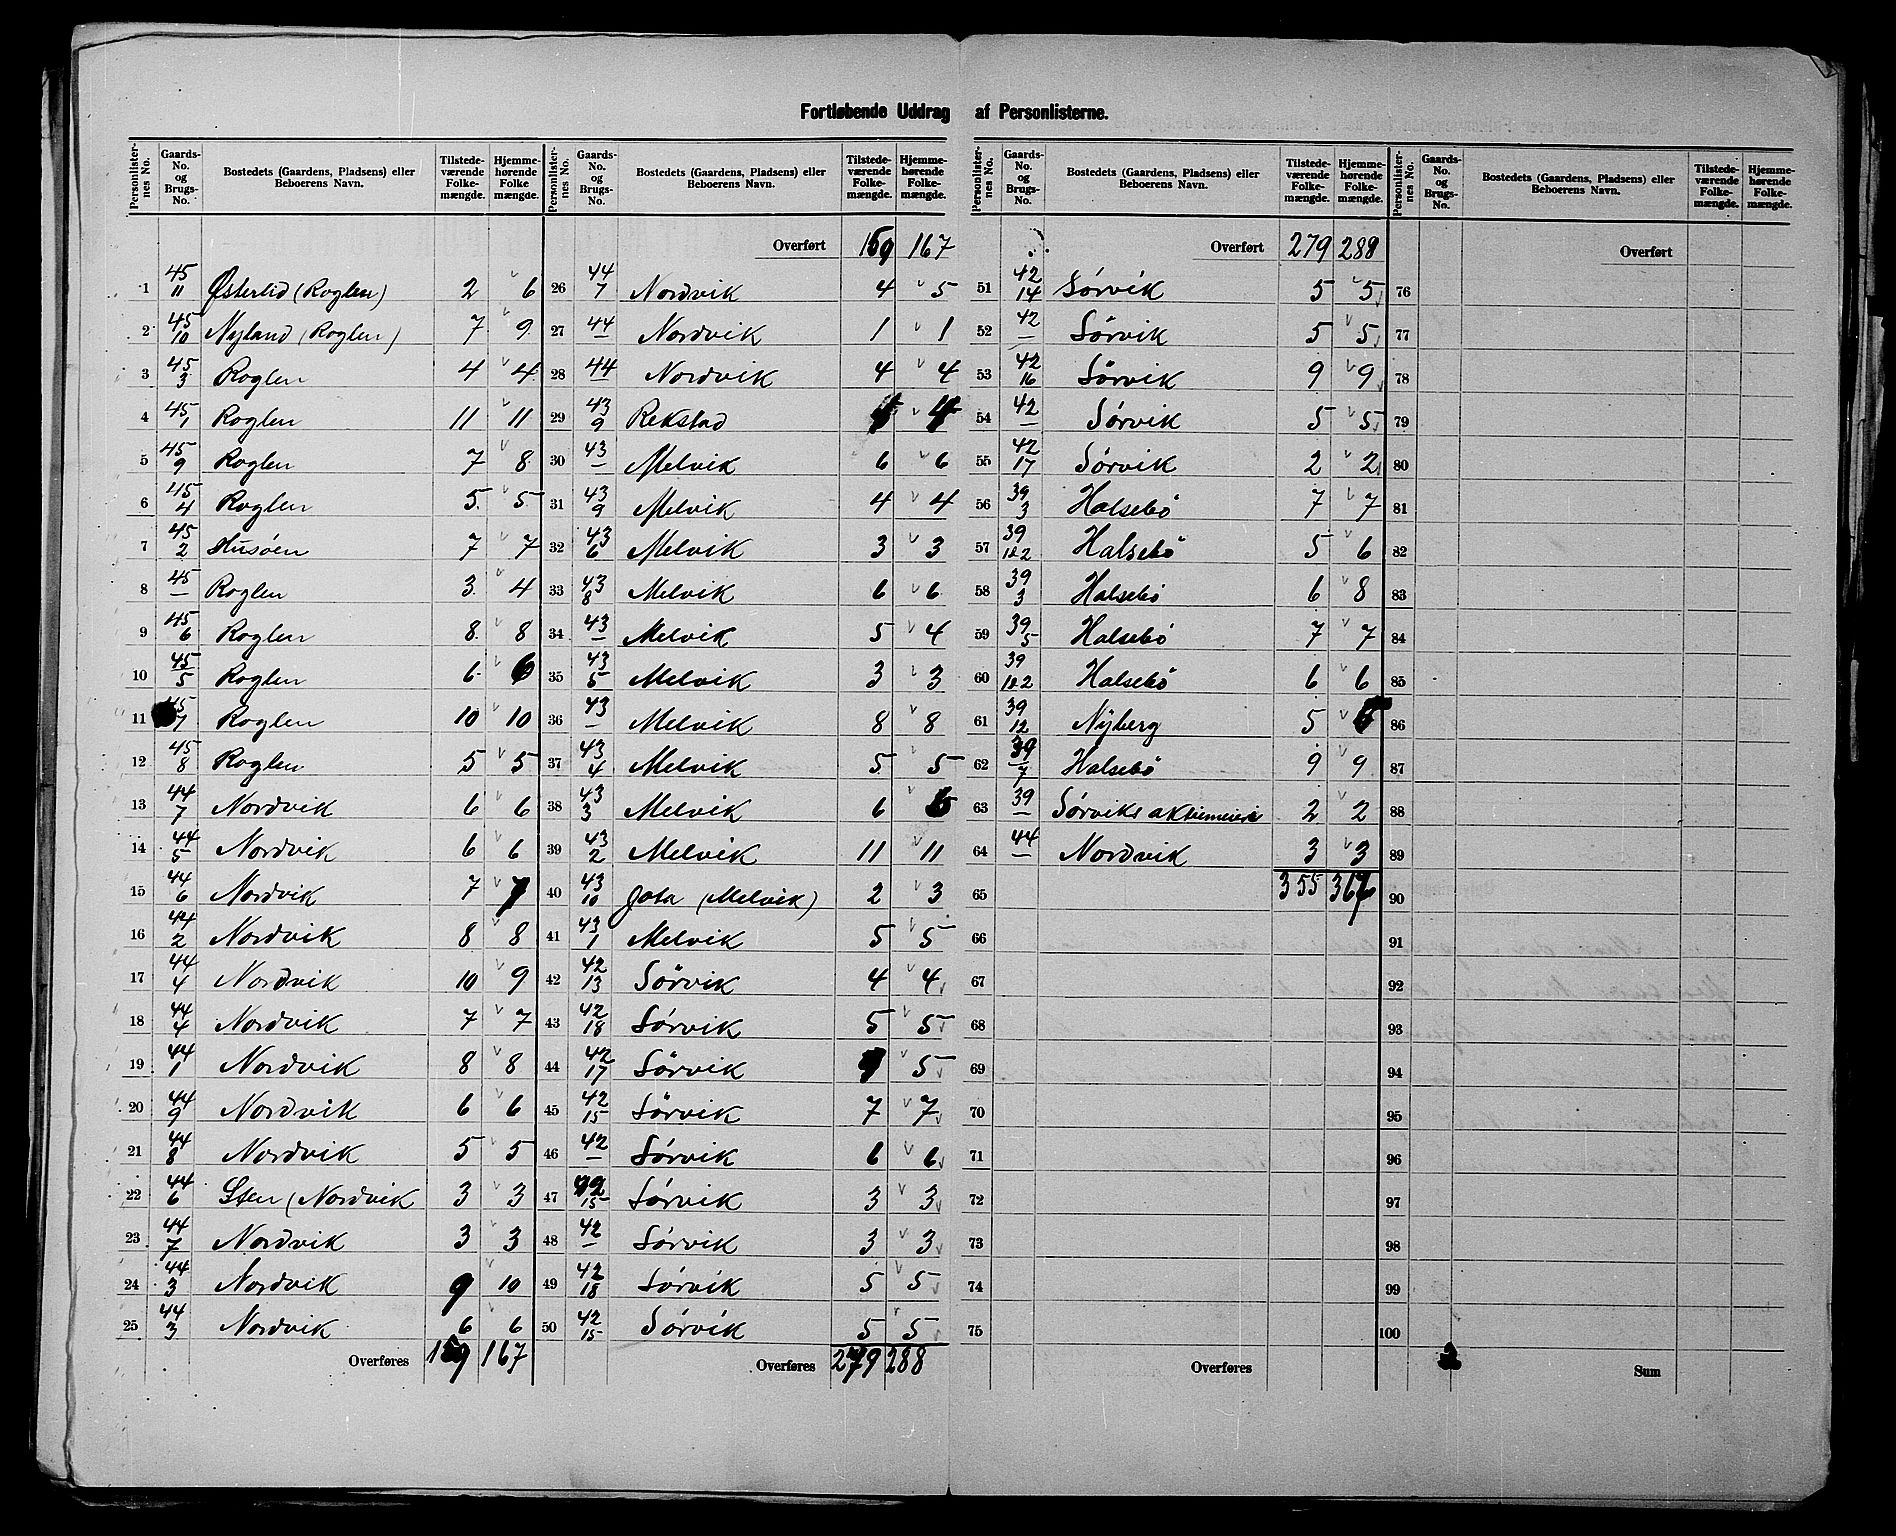 Fortløbende Uddrag af Personlisterne.
Personlister-nes No. | Gaards-No. og Brugs-No. | Bostedets (Gaardens, Pladsens) eller Beboerens Navn. | Tilstede-værende Folke-mængde. | Hjemme-hørende Folke mængde.
1 | 45/11 | Østerlid (Roglen) | 2 | 6
2 | 45/10 | Nyland (Roglen) | 7 | 9
3 | 45/3 | Roglen | 4 | 4
4 | 45/1 | Roglen | 11 | 11
5 | 45/9 | Roglen | 7 | 8
6 | 45/4 | Roglen | 5 | 5
7 | 45/2 | Husøen | 7 | 7
8 | 45/— | Roglen | 3 | 4
9 | 45/6 | Roglen | 8 | 8
10 | 45/5 | Roglen | 6 | 6
11 | 45/7 | Roglen | 10 | 10
12 | 45/8 | Roglen | 5 | 5
13 | 44/7 | Nordvik | 6 | 6
14 | 44/5 | Nordvik | 6 | 6
15 | 44/6 | Nordvik | 7 | 7
16 | 44/2 | Nordvik | 8 | 8
17 | 44/4 | Nordvik | 10 | 9
18 | 44/4 | Nordvik | 7 | 7
19 | 44/1 | Nordvik | 8 | 8
20 | 44/9 | Nordvik | 6 | 6
21 | 44/8 | Nordvik | 5 | 5
22 | 44/6 | Sten (Nordvik | 3 | 3
23 | 44/7 | Nordvik | 3 | 3
24 | 44/3 | Nordvik | 9 | 10
25 | 44/3 | Nordvik | 6 | 6
Overføres | 159 | 167
Personlister-nes No. | Gaards-No. og Brugs-No. | Bostedets (Gaardens, Pladsens) eller Beboerens Navn. | Tilstede-værende Folke-mængde. | Hjemme-hørende Folke-mængde.
Overført | 159 | 167
26 | 44/7 | Nordvik | 4 | 5
27 | 44/— | Nordvik | 1 | 1
28 | 44/— | Nordvik | 4 | 4
29 | 43/9 | Rekstad | 4
30 | 43/— | Melvik | 6 | 6
31 | 43/9 | Melvik | 4 | 4
32 | 43/6 | Melvik | 3 | 3
33 | 43/8 | Melvik | 6 | 6
34 | 43/— | Melvik | 5 | 4
35 | 43/5 | Melvik | 3 | 3
36 | 43/— | Melvik | 8 | 8
37 | 43/4 | Melvik | 5 | 5
38 | 43/3 | Melvik | 6 | 6
39 | 43/2 | Melvik | 11 | 11
40 | 43/10 | Jota (Melvik) | 2 | 3
41 | 43/1 | Melvik | 5 | 5
42 | 42/13 | Sörvik | 4 | 4
43 | 42/18 | Sórvik | 5 | 5
44 | 42/17 | Sörvik | 5
45 | 42/15 | Sörvik | 7 | 7
46 | 42/— | Sórvik | 6 | 6
47 | 42/15 | Sórvik | 3 | 3
48 | 42/— | Sórvik | 3 | 3
49 | 42/18 | Sórvik | 5 | 5
50 | 42/15 | Sórvik | 5 | 5
Overføres | 279 | 288
Personlister-nes No. | Gaards-No. og Brugs-No. | Bostedets (Gaardens, Pladsens) eller Beboerens Navn. | Tilstede-værende Folke-mængde. | Hjemme-hørende Folke-mængde.
Overført | 279 | 288
51 | 42/14 | Sórvik | 5 | 5
52 | 42/— | Sórvik | 5 | 5
53 | 42/16 | Sörvik | 9 | 9
54 | 42/— | Sórvik | 5 | 5
55 | 42/17 | Sórvik | 2 | 2
56 | 39/3 | Halsebö | 7 | 7
57 | 39/1&2 | Halsebö | 5 | 6
58 | 39/3 | Halsebó | 6 | 8
59 | 39/5 | Halsebó | 7 | 7
60 | 39/1&2 | Halsebö | 6 | 6
61 | 39/12 | Nÿberg | 5
62 | 39/7 | Halsebö | 9 | 9
63 | 39/— | Sørviks aktiemeieri | 2 | 2
64 | 44/— | Nordvik | 3 | 3
65 | 355
66
67
68
69
70
71
72
73
74
75
Overføres
Personlister-nes No. | Gaards-No. og Brugs-No. | Bostedets (Gaardens, Pladsens) eller Beboerens Navn. | Tilstede-værende Folke-mængde. | Hjemme-hørende Folke-mængde.
Overført
76
77
78
79
80
81
82
83
84
85
86
87
88
89
90
91
92
93
94
95
96
97
98
99
100
Sum